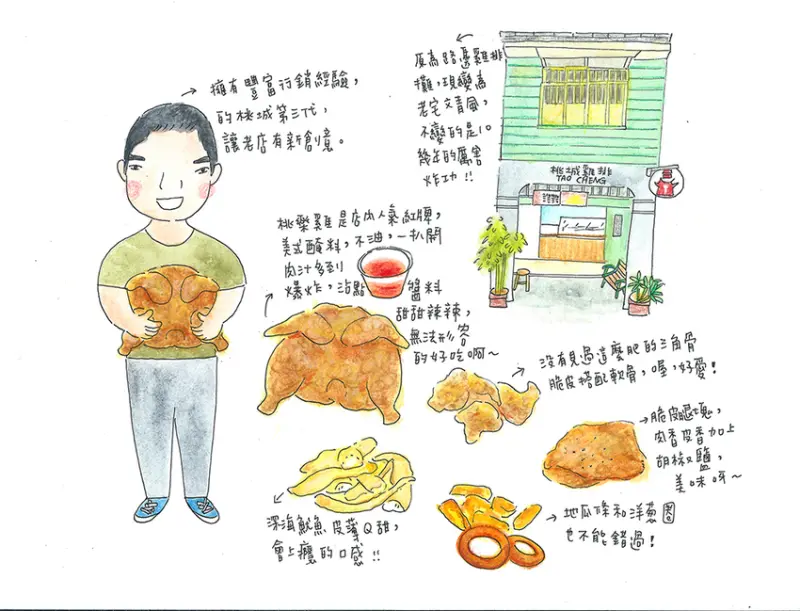 擁有豐富行銷經驗，
的桃城第三代，
讓老店有新創意。
原為路邊雞排
攤，現變為
老宅文青風，
不變的是10
幾年的厲害
炸功!!
桃城雞排
TAO CHENG
桃樂雞是店內人氣紅牌，
美式醃料，不油，一扒開
肉汁多到
爆炸，沾點醬料
甜甜辣辣，
無法形容
的好吃啊~
沒有見過這麼肥的三角骨
脆皮搭配軟骨，喔，好愛!
脆皮腿塊，
肉香皮香加上
胡椒鹽，
美味呀~
深海魷魚皮薄Q甜，
會上癮的口感!!
地瓜條和洋蔥圈
也不能錯過!